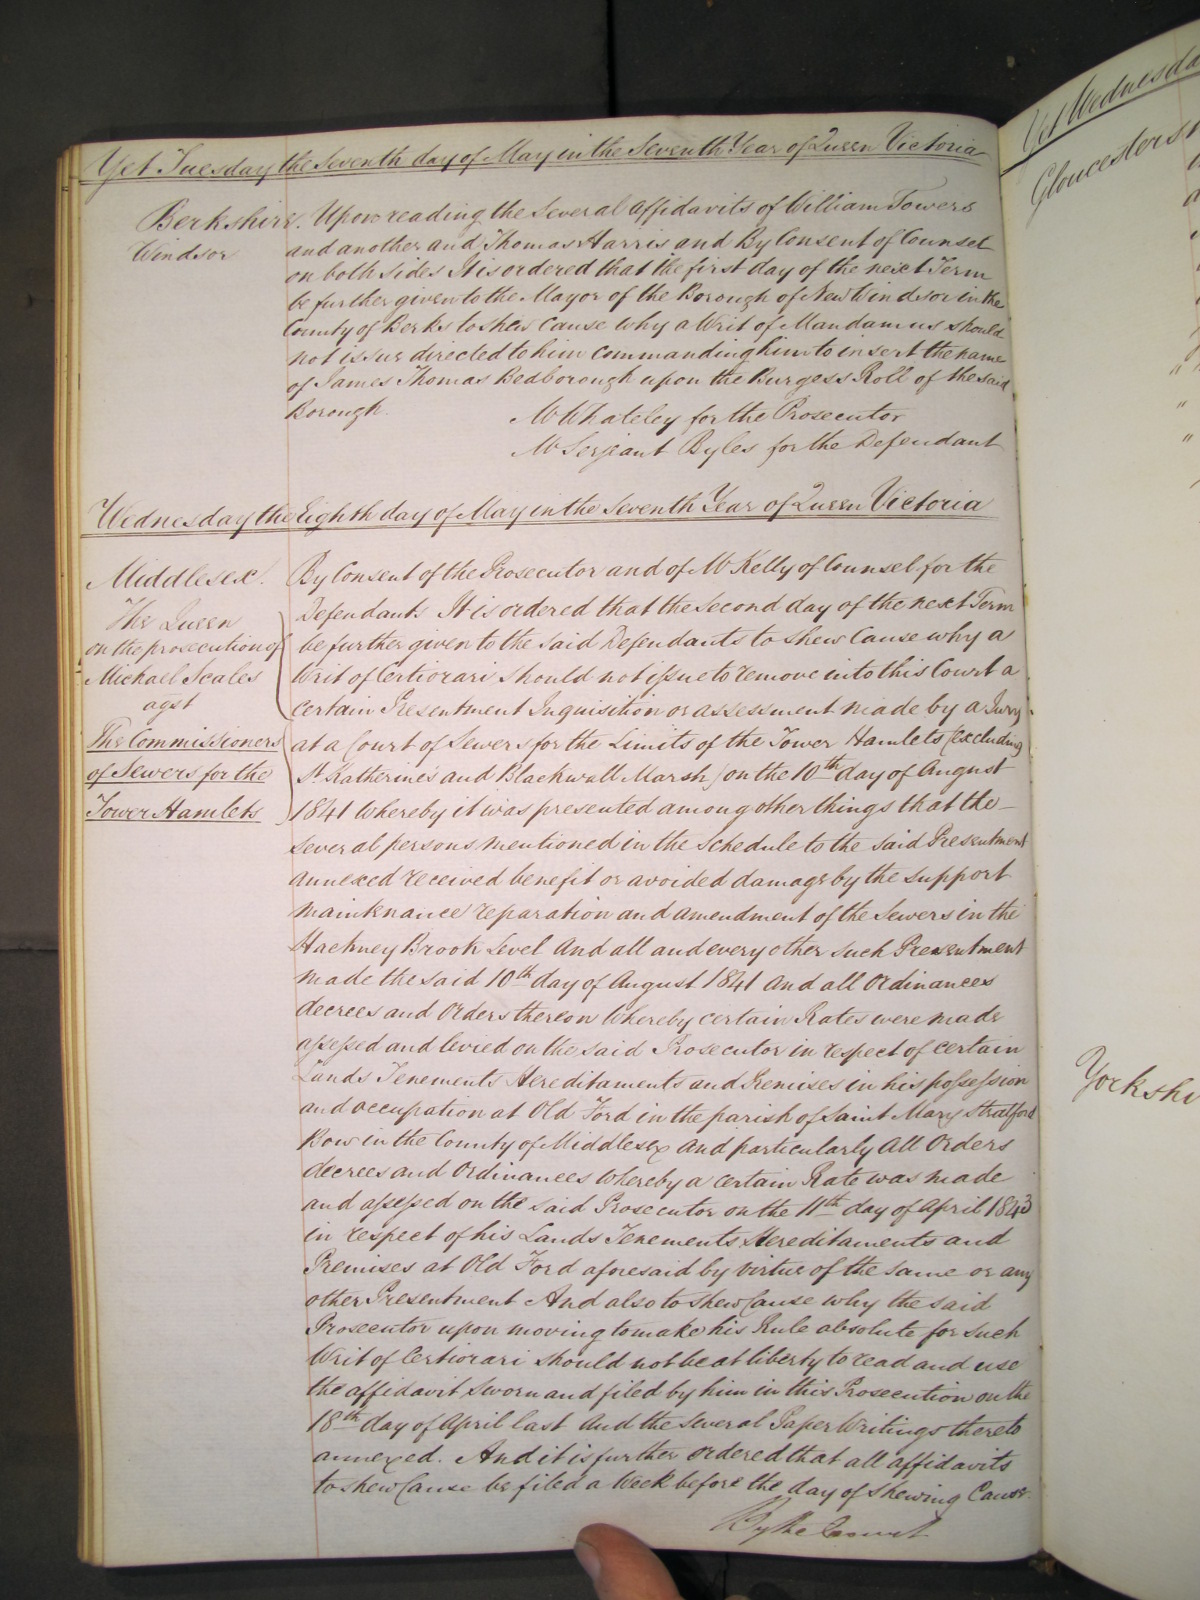 Yet Tuesday the Seventh day of May in the Seventh Year of Queen Victoria
Berkshire.
Windsor
Upon reading the Several Affidavits of William Towers
and another and Thomas Harris and By Consent of Counsel
on both sides It is ordered that the first day of the next Term
be further given to the Mayor of the Borough of New Windsor in the
County of Berks to shew Cause why a Writ of Mandamus should
not issue directed to him commanding him to insert the name
of James Thomas Bedborough upon the Burgess Roll of the said
Borough.
Mr Whateley for the Prosecutor
Mr Serjeant Byles for the Defendant
Wednesday the Eighth day of May in the Seventh Year of Queen Victoria
Middlesex.
The Queen
on the prosecution of
Michael Scales
agst
The Commissioners
of Sewers for the
Tower Hamlets
By Consent of the Prosecutor and of Mr Kelly of Counsel for the
Defendants It is ordered that the Second day of the next Term
be further given to the said Defendants to shew Cause why a
Writ of Certiorari should not issue to remove into this Court a
certain Presentment Inquisition or assessment made by a Jury
at a Court of Sewers for the Limits of the Tower Hamlets (excluding
St Katherine's and Blackwall Marsh) on the 10th day of August
1841 whereby it was presented among other things that the
several persons mentioned in the schedule to the said Presentment
annexed received benefit or avoided damage by the support
maintenance reparation and amendment of the Sewers in the
Hackney Brook Level And all and every other such Presentment
made the said 10th day of August 1841 And all Ordinances
decrees and Orders thereon Whereby certain Rates were made
assessed and levied on the said Prosecutor in respect of certain
Lands Tenements Hereditaments and Premises in his possession
and occupation at Old Ford in the parish of Saint Mary Stratford
Bow in the County of Middlesex And particularly All Orders
decrees and Ordinances whereby a certain Rate was made
and assessed on the said Prosecutor on the 11th day of April 1843
in respect of his Lands Tenements Hereditaments and
Premises at Old Ford aforesaid by virtue of the same or any
other Presentment And also to shew Cause why the said
Prosecutor upon moving to make his Rule absolute for such
Writ of Certiorari should not be at liberty to read and use
the affidavit Sworn and filed by him in this Prosecution on the
18th day of April last And the several Paper Writings thereto
annexed. And it is further ordered that all affidavits
to shew Cause be filed a Week before the day of shewing Cause.
By the Court
Yet Wednesda
Gloucestersh
Yorkshi